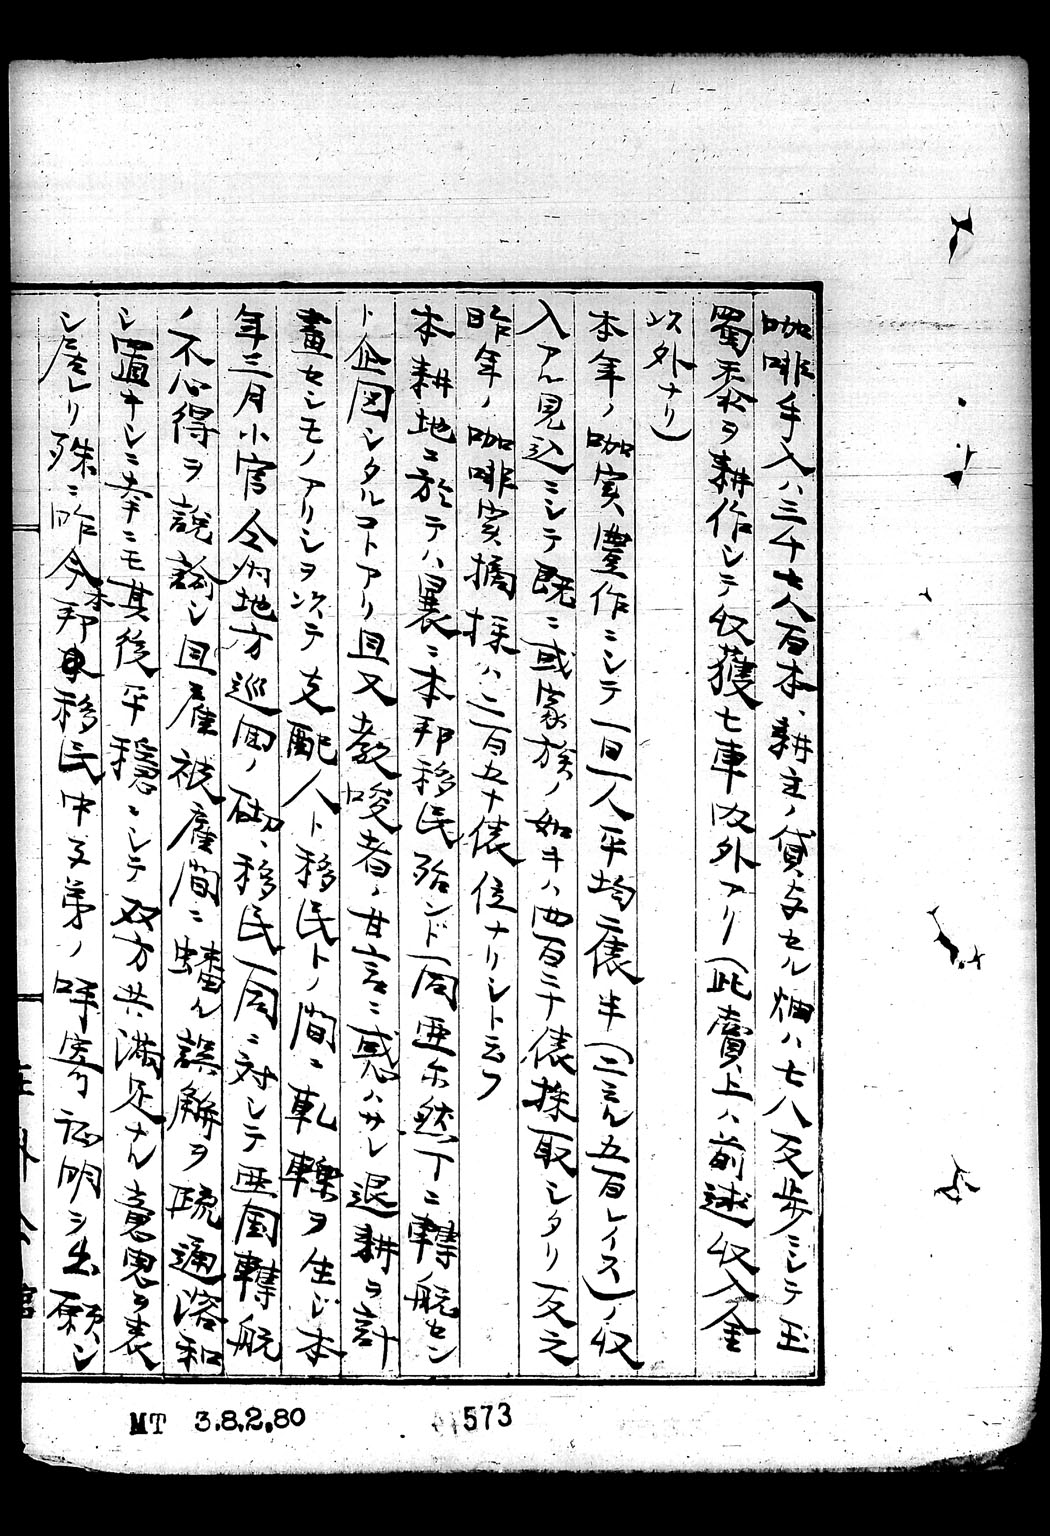 咖啡手入ハ三千七八百本、耕主ノ貸与セル畑ハ七八反歩ニシテ玉
蜀黍ヲ耕作シテ収獲七車内外アリ（此賣上ハ前述収入金
以外ナリ）
本年ノ咖実ハ豐作ニシテ一日一人平均二俵半（二ミル五百レイス）ノ収
入アル見込ニシテ既ニ或家族ノ如キハ四百三十俵採取シタリ反之
昨年ノ咖啡実摘採ハ二百五十俵位ナリシト云フ
本耕地ニ於テハ曩ニ本邦移民殆ンド一同亜尓然丁ニ轉航セン
ト企図シタルコトアリ且又教唆者ノ甘言ニ惑ハサレ退耕ヲ計
畫セシモノアリシヲ以テ支配人ト移民トノ間ニ軋轢ヲ生ジ本
年三月小官仝内地方巡回ノ砌、移民一同ニ対シテ亜国轉航
ノ不心得ヲ説諭シ且雇被雇間ニ蟠ル誤解ヲ疏通溶和
シ置キシニ幸ニモ其後平穏ニシテ双方共満足ナル意思ヲ表
シ居レリ殊ニ昨今本邦移民中子弟ノ呼寄証明ヲ出願シ
MT 3.8.2.80
573